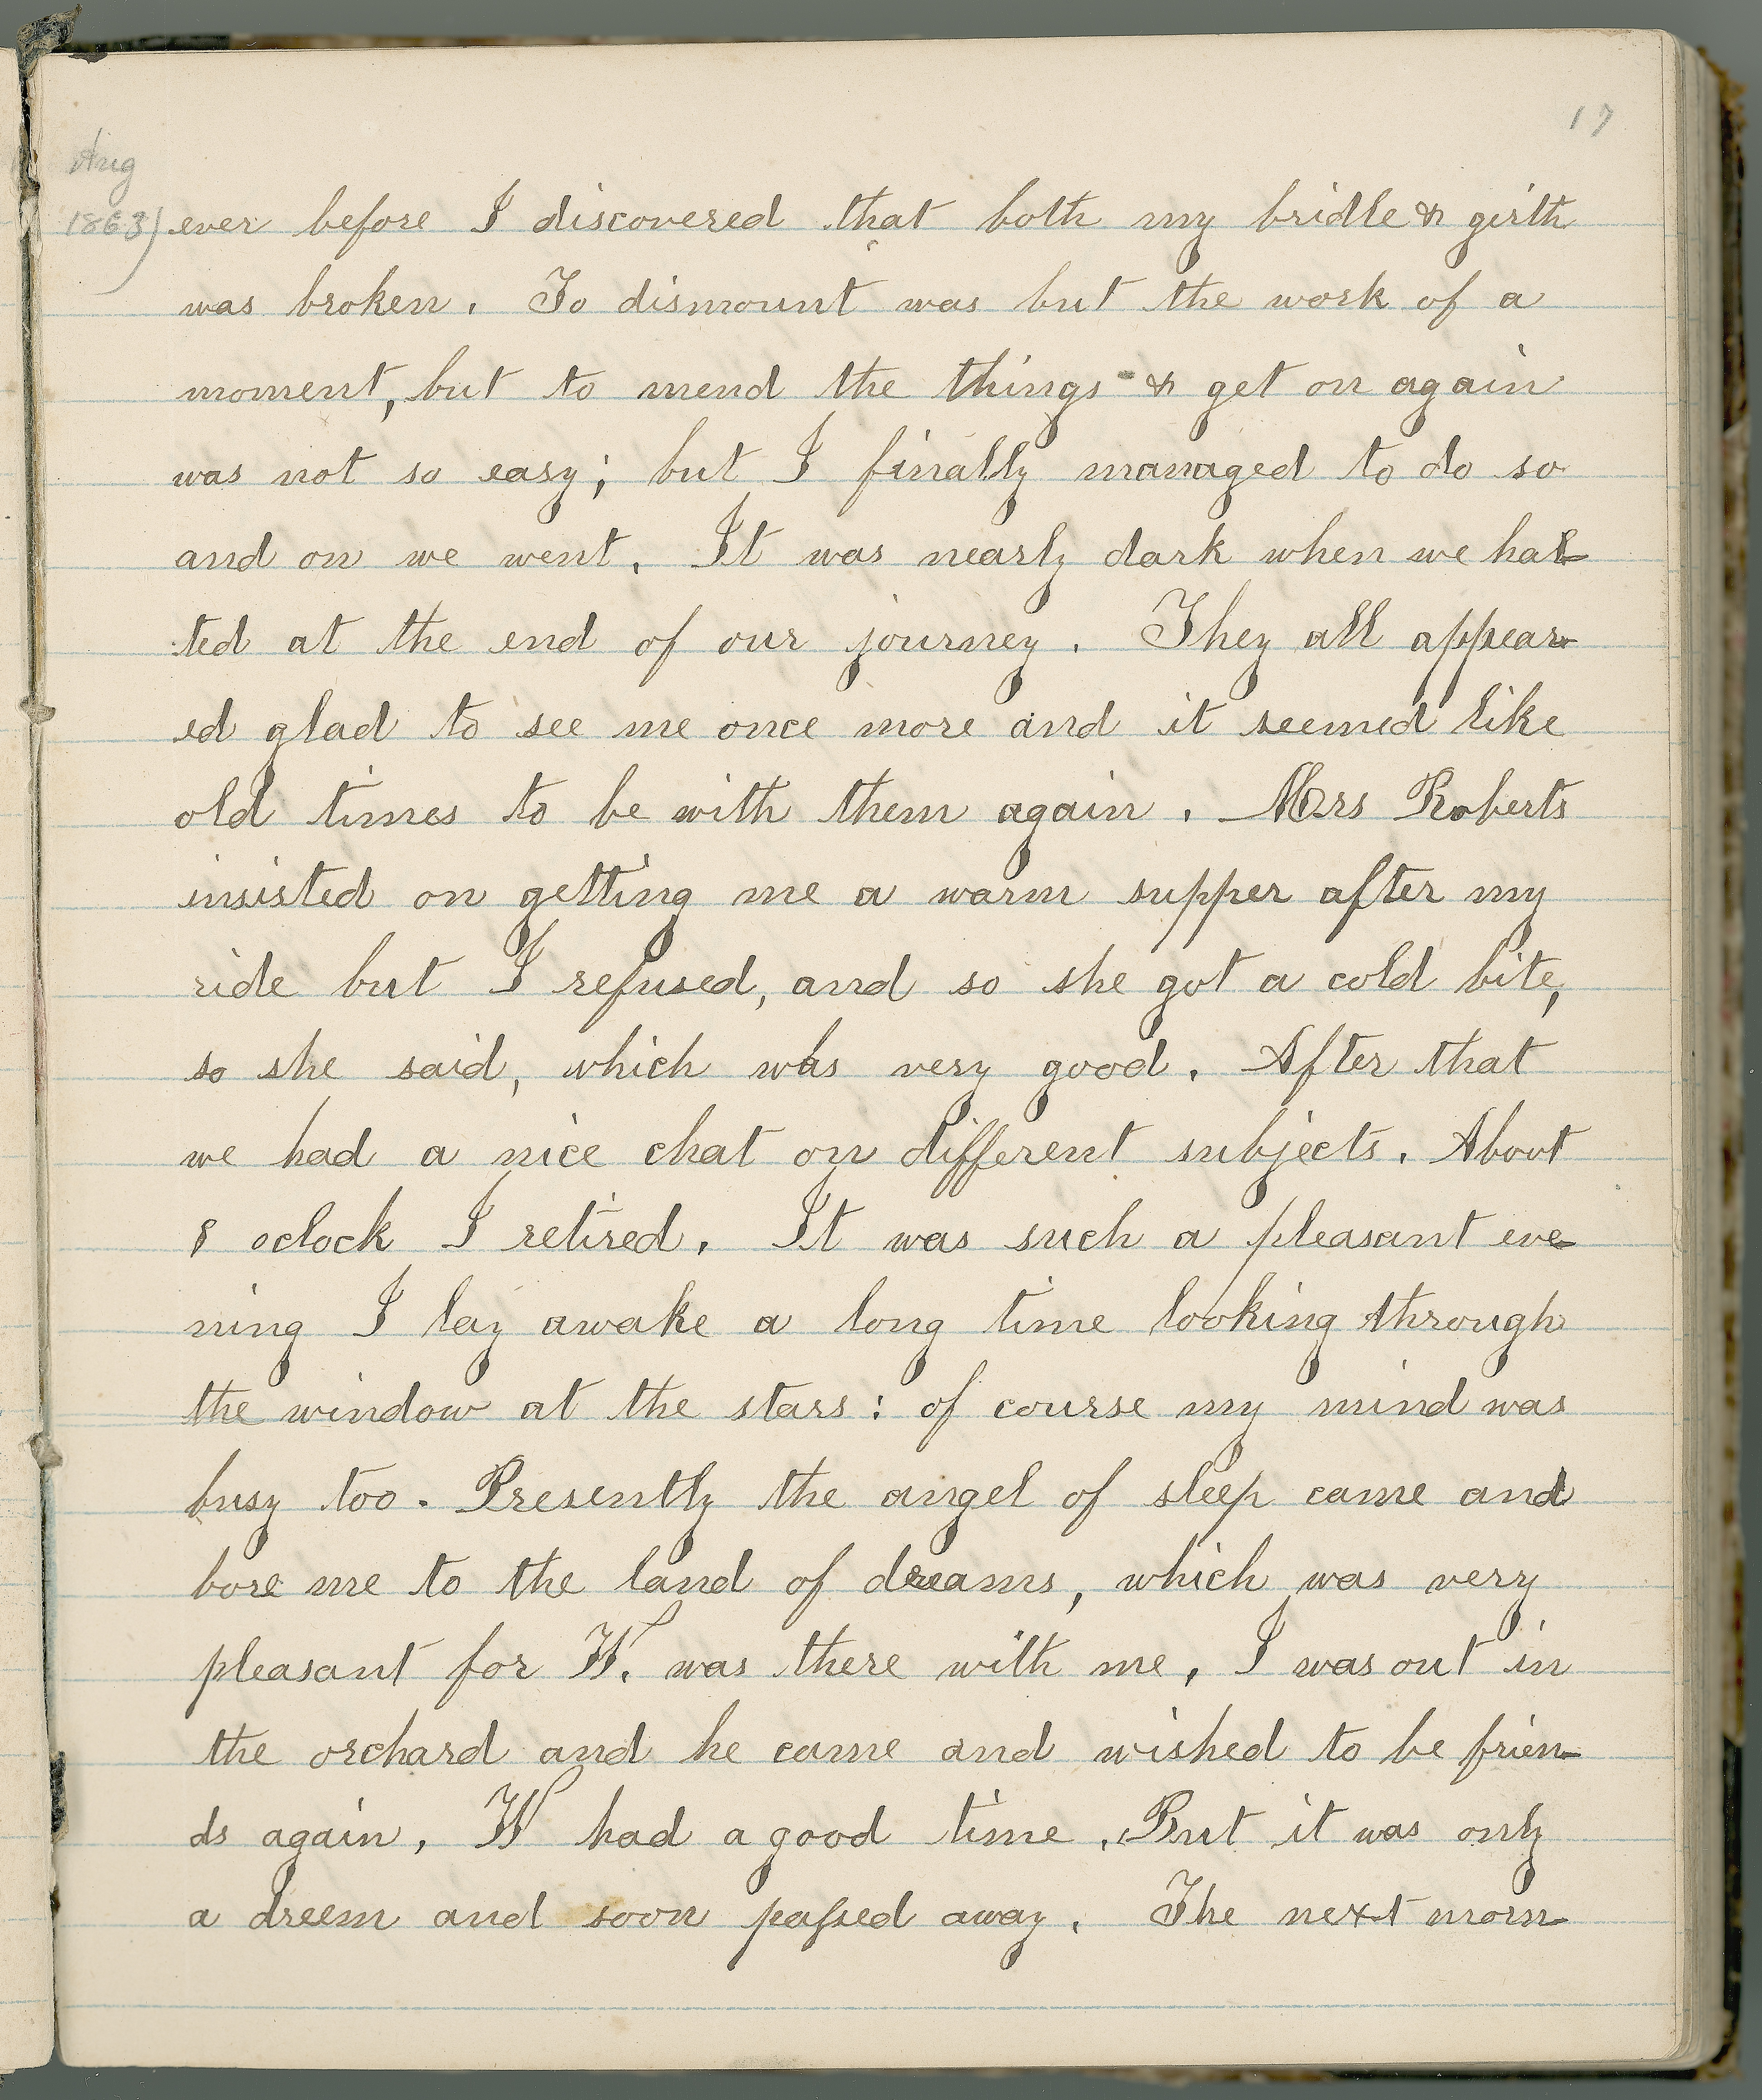 17
Aug
1863)
ever before I discovered that both my bridle & girth
was broken. To dismount was but the work of a
moment, but to mend the things & get on again
was not so easy; but I finally managed to do so
and on we went. It was nearly dark when we hal-
ted at the end of our journey. They all appear-
ed glad to see me once more and it seemed like
old times to be with them again. Mrs Roberts
insisted on getting me a warm supper after my
ride but I refused, and so she got a cold bite,
so she said, which was very good. After that
we had a nice chat on different subjects. About
8 oclock I retired. It was such a pleasant eve-
ning I lay awake a long time looking through
the window at the stars: of course my mind was
busy too. Presently the angel of sleep came and
bore me to the land of dreams, which was very
pleasant for W. was there with me. I was out in
the orchard and he came and wished to be frien-
ds again. W had a good time. But it was only
a dreem and soon passed away. The next morn-